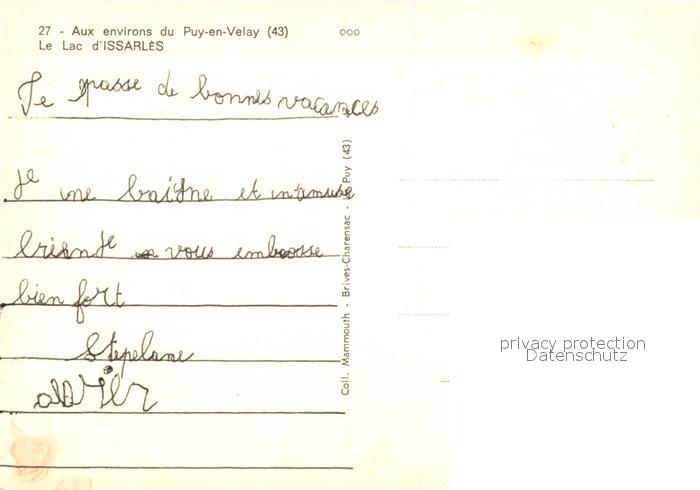 27 - Aux environs du Puy-en-Velay (43)
Le Lac d'ISSARLÈS
Je passe de bonnes vacances
Je me baigne et m'amuse
brien Je vous embrosse
bien fort
Stepelane
Coll. Mammouth - Brives-Charensac - Le Puy (43)
privacy protection
Datenschutz